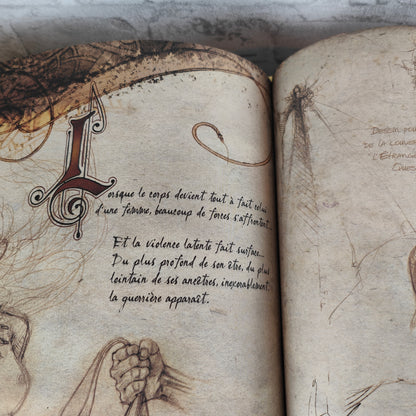 Lorsque le corps devient tout à fait celui
d'une femme, beaucoup de forces s'affrontent...
Et la violence latente fait surface...
Du plus profond de son être, du plus
lointain de ses ancêtres, inexorablement,
la guerrière apparaît.
Dessin
de la couver
l'Étrange